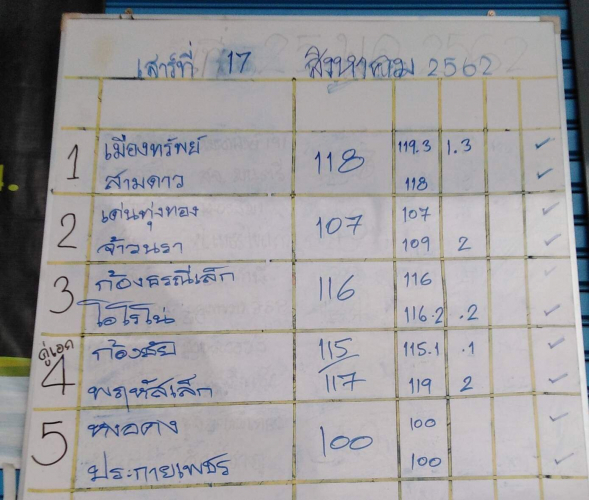 เสาร์ที่ 17 สิงหาคม 2562
1 เมืองทรัพย์ 118 119.3 1.3
สามดาว 118
2 เด่นทุ่งทอง 107 107
จ้าวนรา 109 2
3 ก้องธรณีเล็ก 116 116
ไอโรโน่ 116.2 .2
คู่เอก
4 ก้องชัย 115 115.1 .1
พฤหัสเล็ก 117 119 2
5 100 100
ประกายเพชร 100